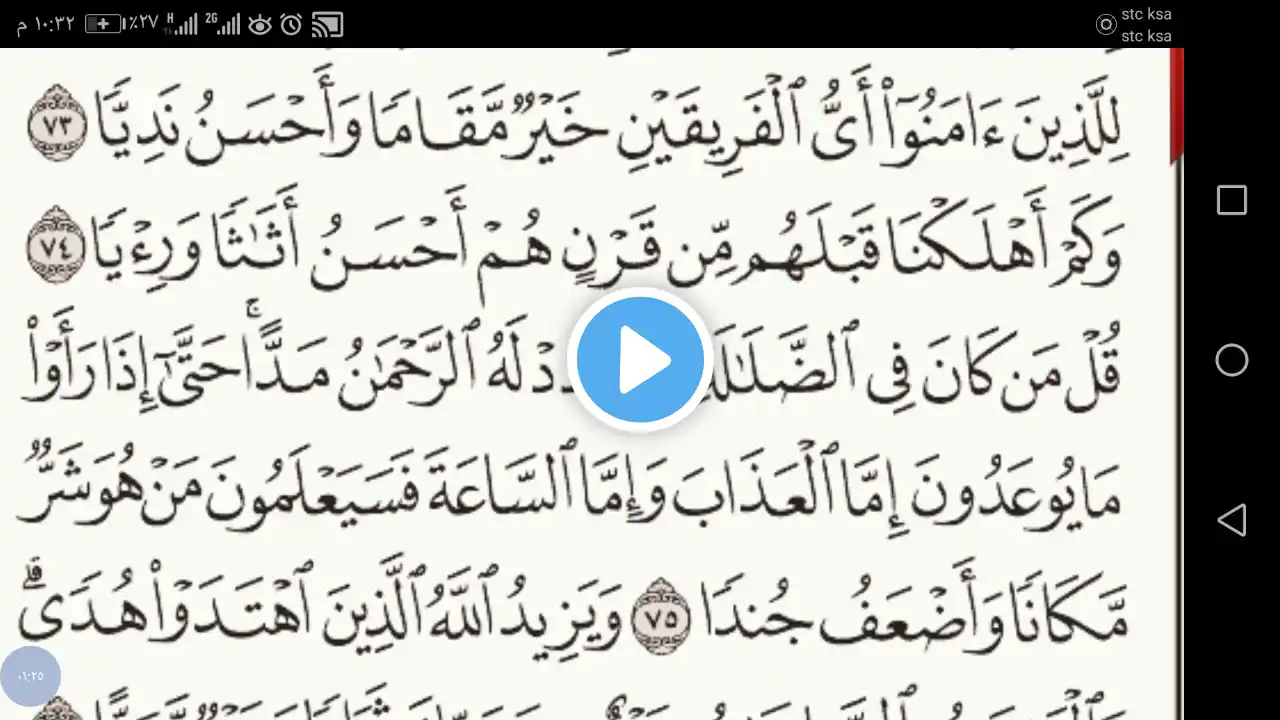 م ١٠:٣٢ ٪٢٧ H 2G stc ksa
stc ksa
لِلَّذِينَ ءَامَنُوٓا۟ أَىُّ ٱلْفَرِيقَيْنِ خَيْرٌ مَّقَامًا وَأَحْسَنُ نَدِيًّا ٧٣
وَكَمْ أَهْلَكْنَا قَبْلَهُم مِّن قَرْنٍ هُمْ أَحْسَنُ أَثَٰثًا وَرِءْيًا ٧٤
قُلْ مَن كَانَ فِى لَهُ ٱلرَّحْمَٰنُ مَدًّا ۚ حَتَّىٰٓ إِذَا رَأَوْا۟
مَا يُوعَدُونَ إِمَّا ٱلْعَذَابَ وَإِمَّا ٱلسَّاعَةَ فَسَيَعْلَمُونَ مَنْ هُوَ شَرٌّ
مَّكَانًا وَأَضْعَفُ جُندًا ٧٥ وَيَزِيدُ ٱللَّهُ ٱلَّذِينَ ٱهْتَدَوْا۟ هُدًى ۗ
٠١:٢٥